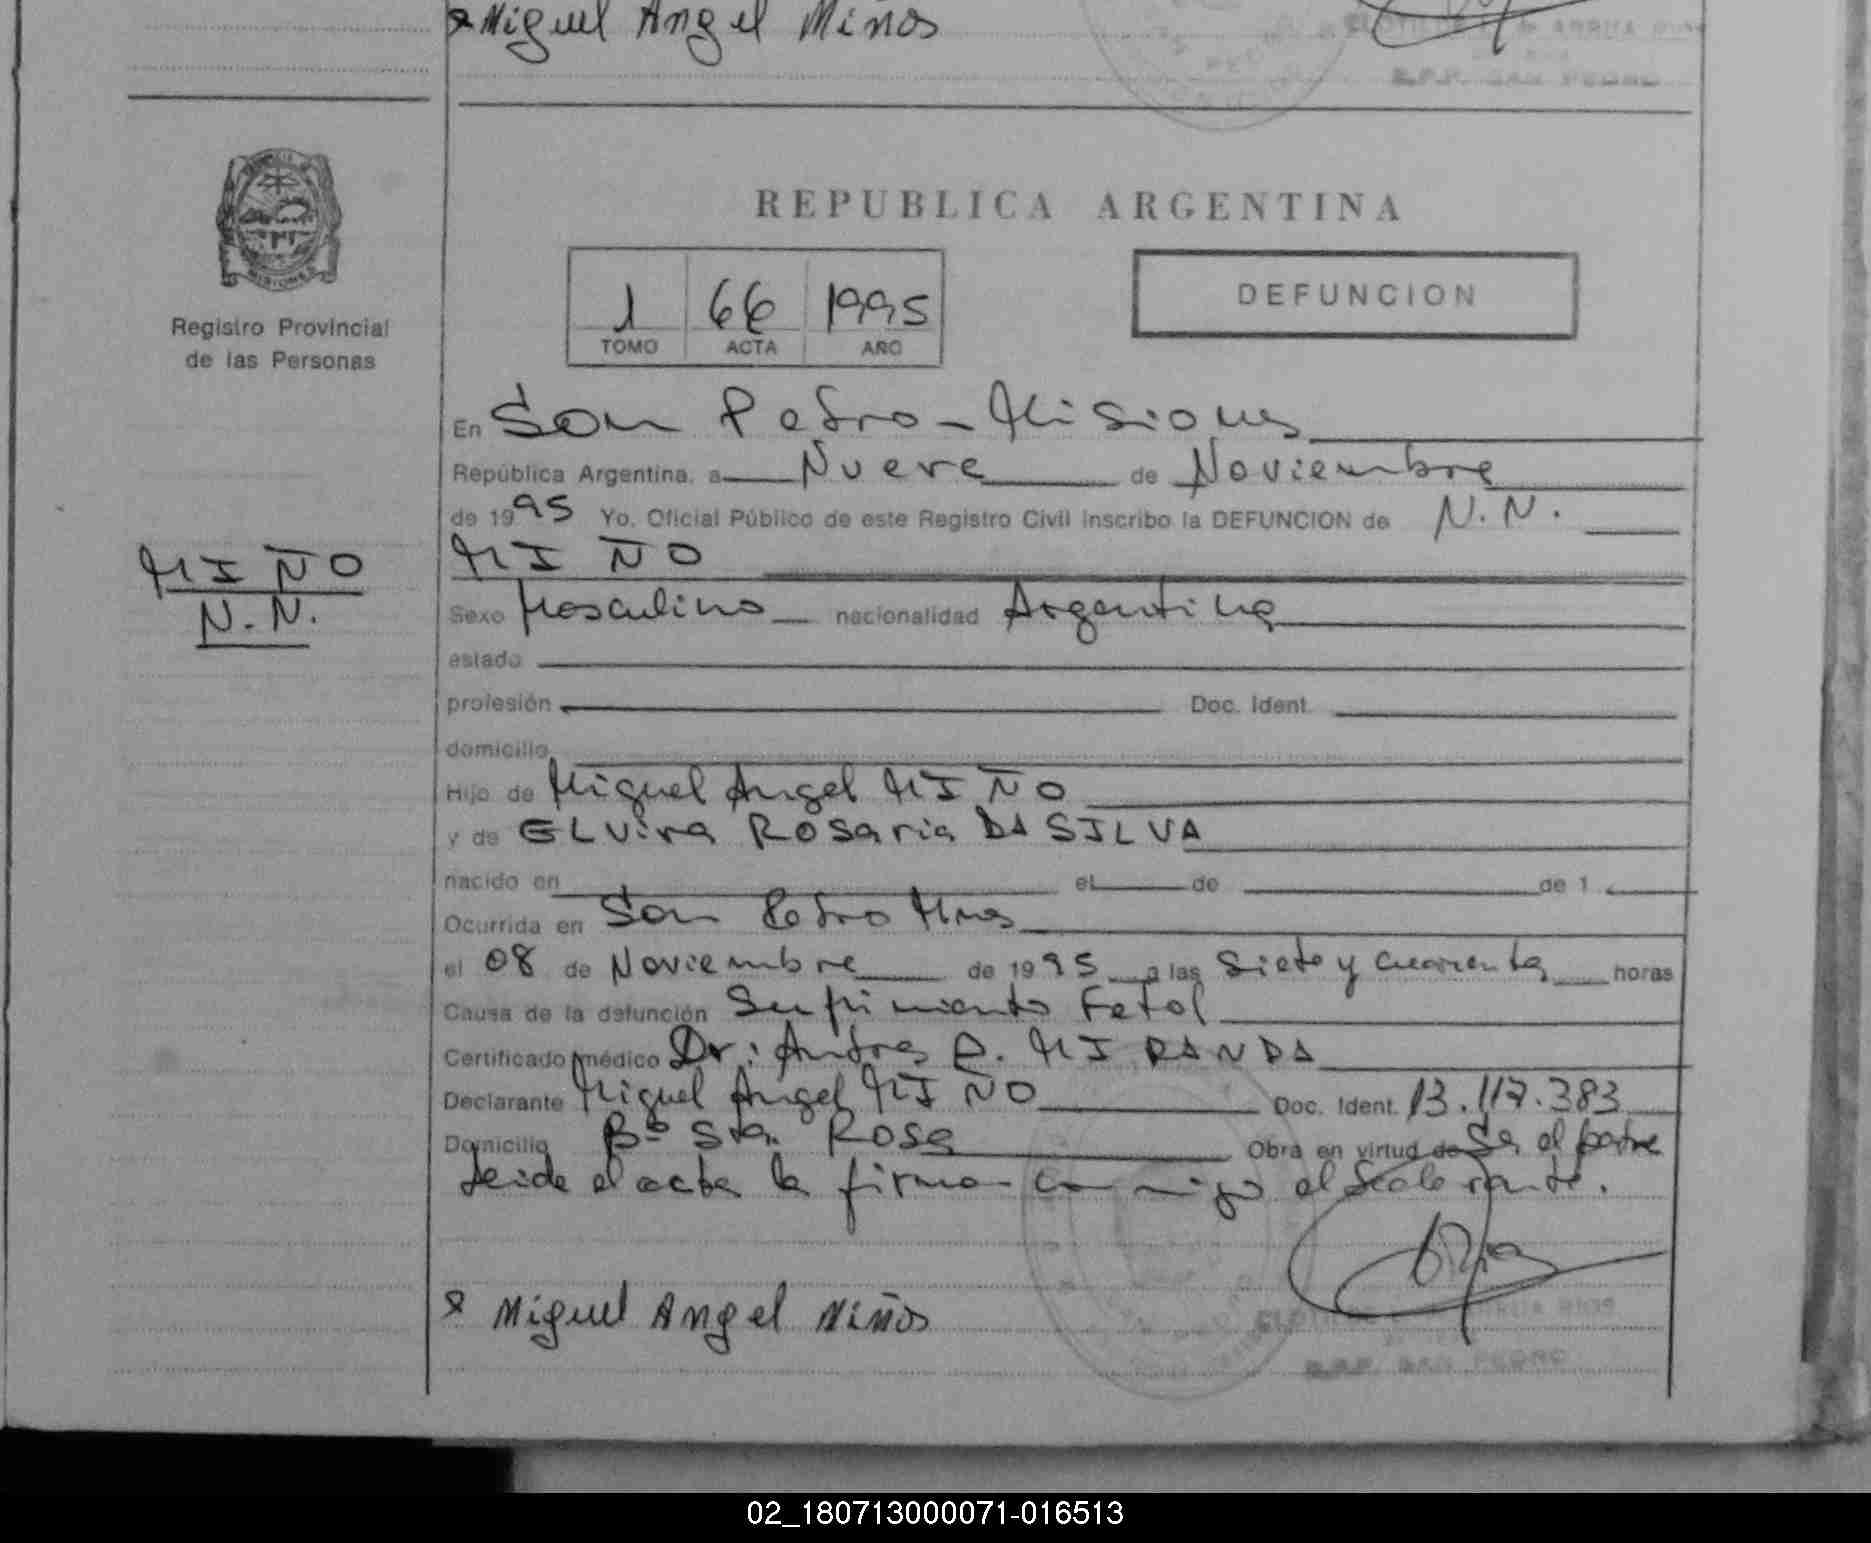 Miguel Angel Miños
R.P.P. SAN PEDRO
REPUBLICA ARGENTINA
MISIONES
Registro Provincial
de las Personas
1 66 1995
TOMO ACTA AÑO
DEFUNCION
En San Pedro - Misiones
República Argentina, a Nueve de Noviembre
de 1995 Yo, Oficial Público de este Registro Civil inscribo la DEFUNCION de N.N.
MIÑO
MIÑO
N.N.
Sexo Masculino nacionalidad Argentina
estado
profesión Doc. Ident.
domicilio
Hijo de Miguel Angel MIÑO
y de ELvira Rosaria DA SILVA
nacido en el de de 1
Ocurrida en San Pedro Mnes
el 08 de Noviembre de 1995 a las Siete y cuarenta horas
Causa de la defunción Sufrimiento Fetal
Certificado médico Dr: Andres R. MIRANDA
Declarante Miguel Angel MIÑO Doc. Ident. 13.117.383
Domicilio Bº Sta. Rosa Obra en virtud de Ser el padre
Leida el acta la firma conmigo el declarante.
Miguel Angel Miños
R.P.P. SAN PEDRO
02_180713000071-016513